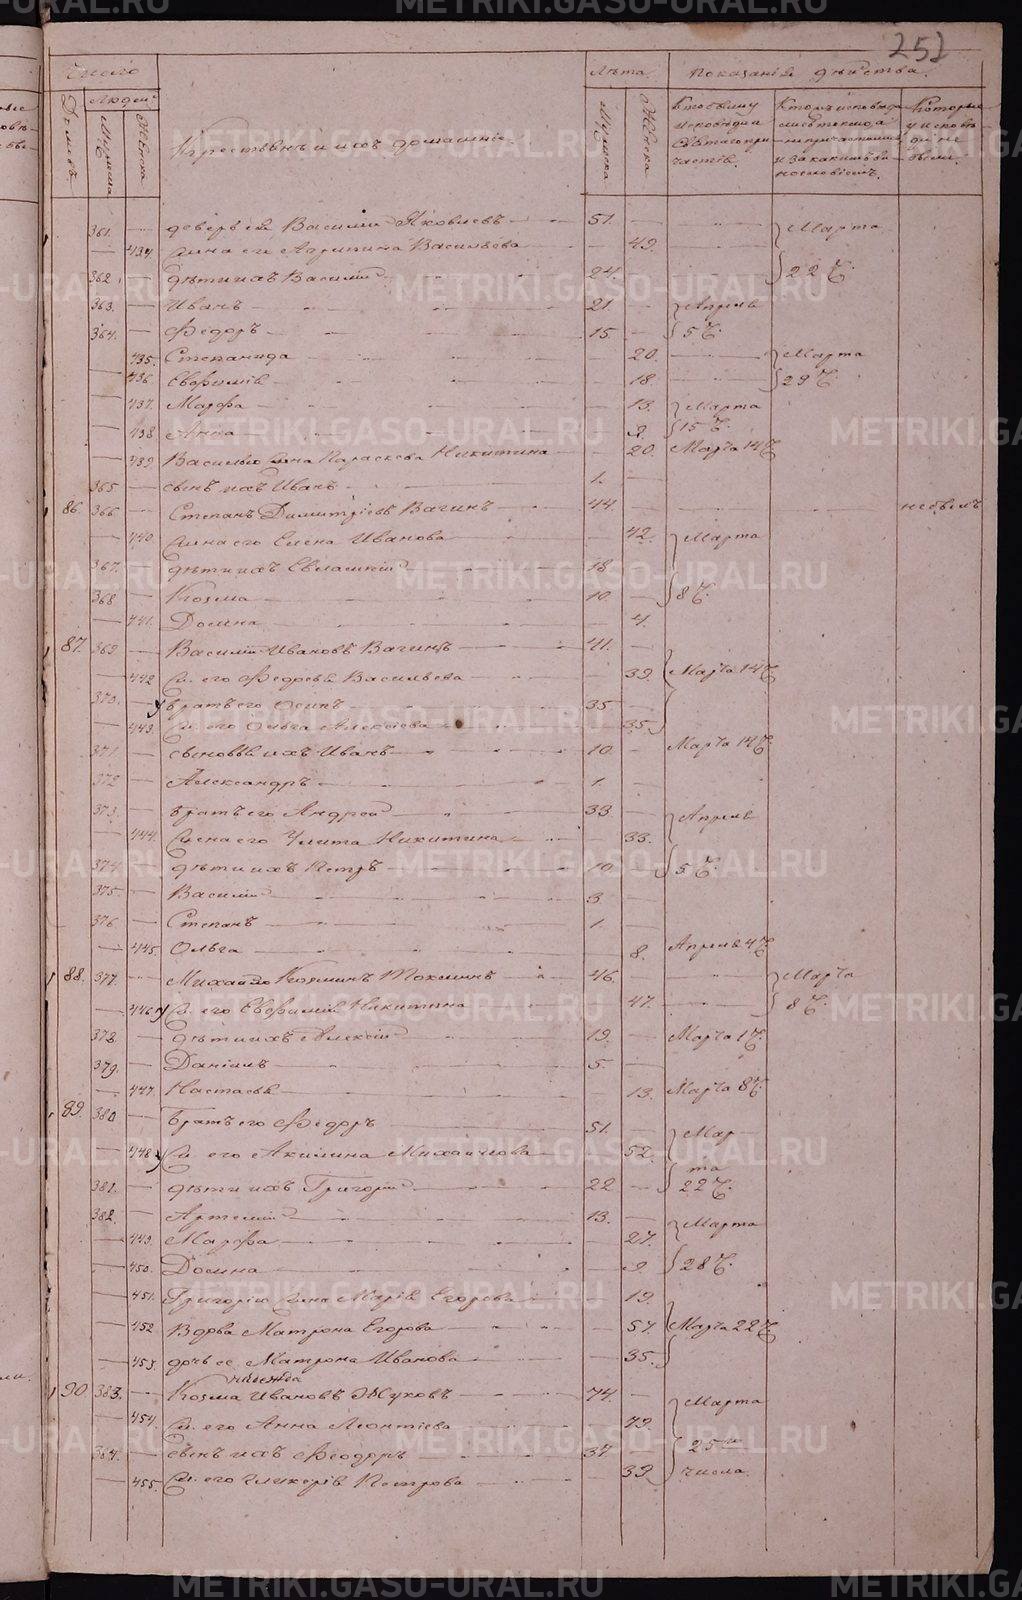 252
Число
Лѣта.
Показанія дѣйства.
Домовъ.
Людей.
Мужеска
Женска
Крестьяне и ихъ домашніе.
Мужеска
Женска
Кто былъ у исповѣди и Святаго причастія.
Кто исповѣдался токмо, а не причастился и за какимъ виносло­віемъ.
Которые у исповѣди не были.
361. — деверь ея Василій Яковлевъ 51. — Марта
— 434. жена его Агрипина Васильева — 49.
362. — дѣти ихъ Василій 24. — 22 Ч.
363. — Иванъ 21. — Апрѣля
364. — Ѳедоръ 15. — 5 Ч.
— 435. Степанида — 20. Марта
— 436 Евфимія — 18. 29 Ч.
— 437. Марфа — 13. Марта
— 438 Анна — 9. 15 Ч.
— 439. Василья жена Параскева Никитина — 20. Марта 14 Ч.
365 — сынъ ихъ Иванъ 1. —
86. 366 — Степанъ Димитріевъ Вагинъ 44. — не былъ
— 440 жена его Елена Иванова — 42. Марта
367. — дѣти ихъ 18. —
368 — Козма 10. — 8 Ч.
— 441. Домна — 4.
87. 369 — Василій Ивановъ Вагинъ 41. —
— 442 ж. его Васильева — 39. Марта 14 Ч.
370. — братъ его Осипъ 35 —
— 443. ж. его Ольга Алексѣева — 35.
371 — сыновья ихъ Иванъ 10. — Марта 14 Ч.
372 — Александръ 1.
373. — братъ его Андрей 33 — Апрѣля
— 444. жена его Улита Никитина — 33.
374. — дѣти ихъ Петръ 10. — 5 Ч.
375. — Василій 3.
376 — Степанъ 1.
— 445. Ольга — 8. Апрѣля 4 Ч.
88. 377. — Михайло Козминъ 46. Марта
— 446 ж. его Евфимія Никитина — 47. 8 Ч.
378 — дѣти ихъ Алексій 19. — Марта 1 Ч.
379. — Даніилъ 5. —
— 447. Настасья — 13. Марта 8 Ч.
89. 380 — Братъ его Ѳедоръ 51. — Мар
— 448 ж. его Акилина Михайлова — 52. та
381. — дѣти ихъ Григорій 22 — 22 Ч.
382. — Артемій 13. — Марта
— 449. Марфа — 27.
— 450. Домна — 9. 28 Ч.
— 451. Григорію жена Марія Егорова — 19.
— 452 Вдова Матрона Егорова — 57. Марта 22 Ч
— 453. дочь ее Матрона Иванова — 35.
90 383. — Козма Ивановъ Жуковъ 74. — Марта
— 454. ж. его Анна Леонтіева — 79.
384. — сынъ ихъ Ѳеодоръ 37 — 25 и
— 455. ж. его Гликерія Петрова — 39 числа.
METRIKI.GASO-URAL.RU